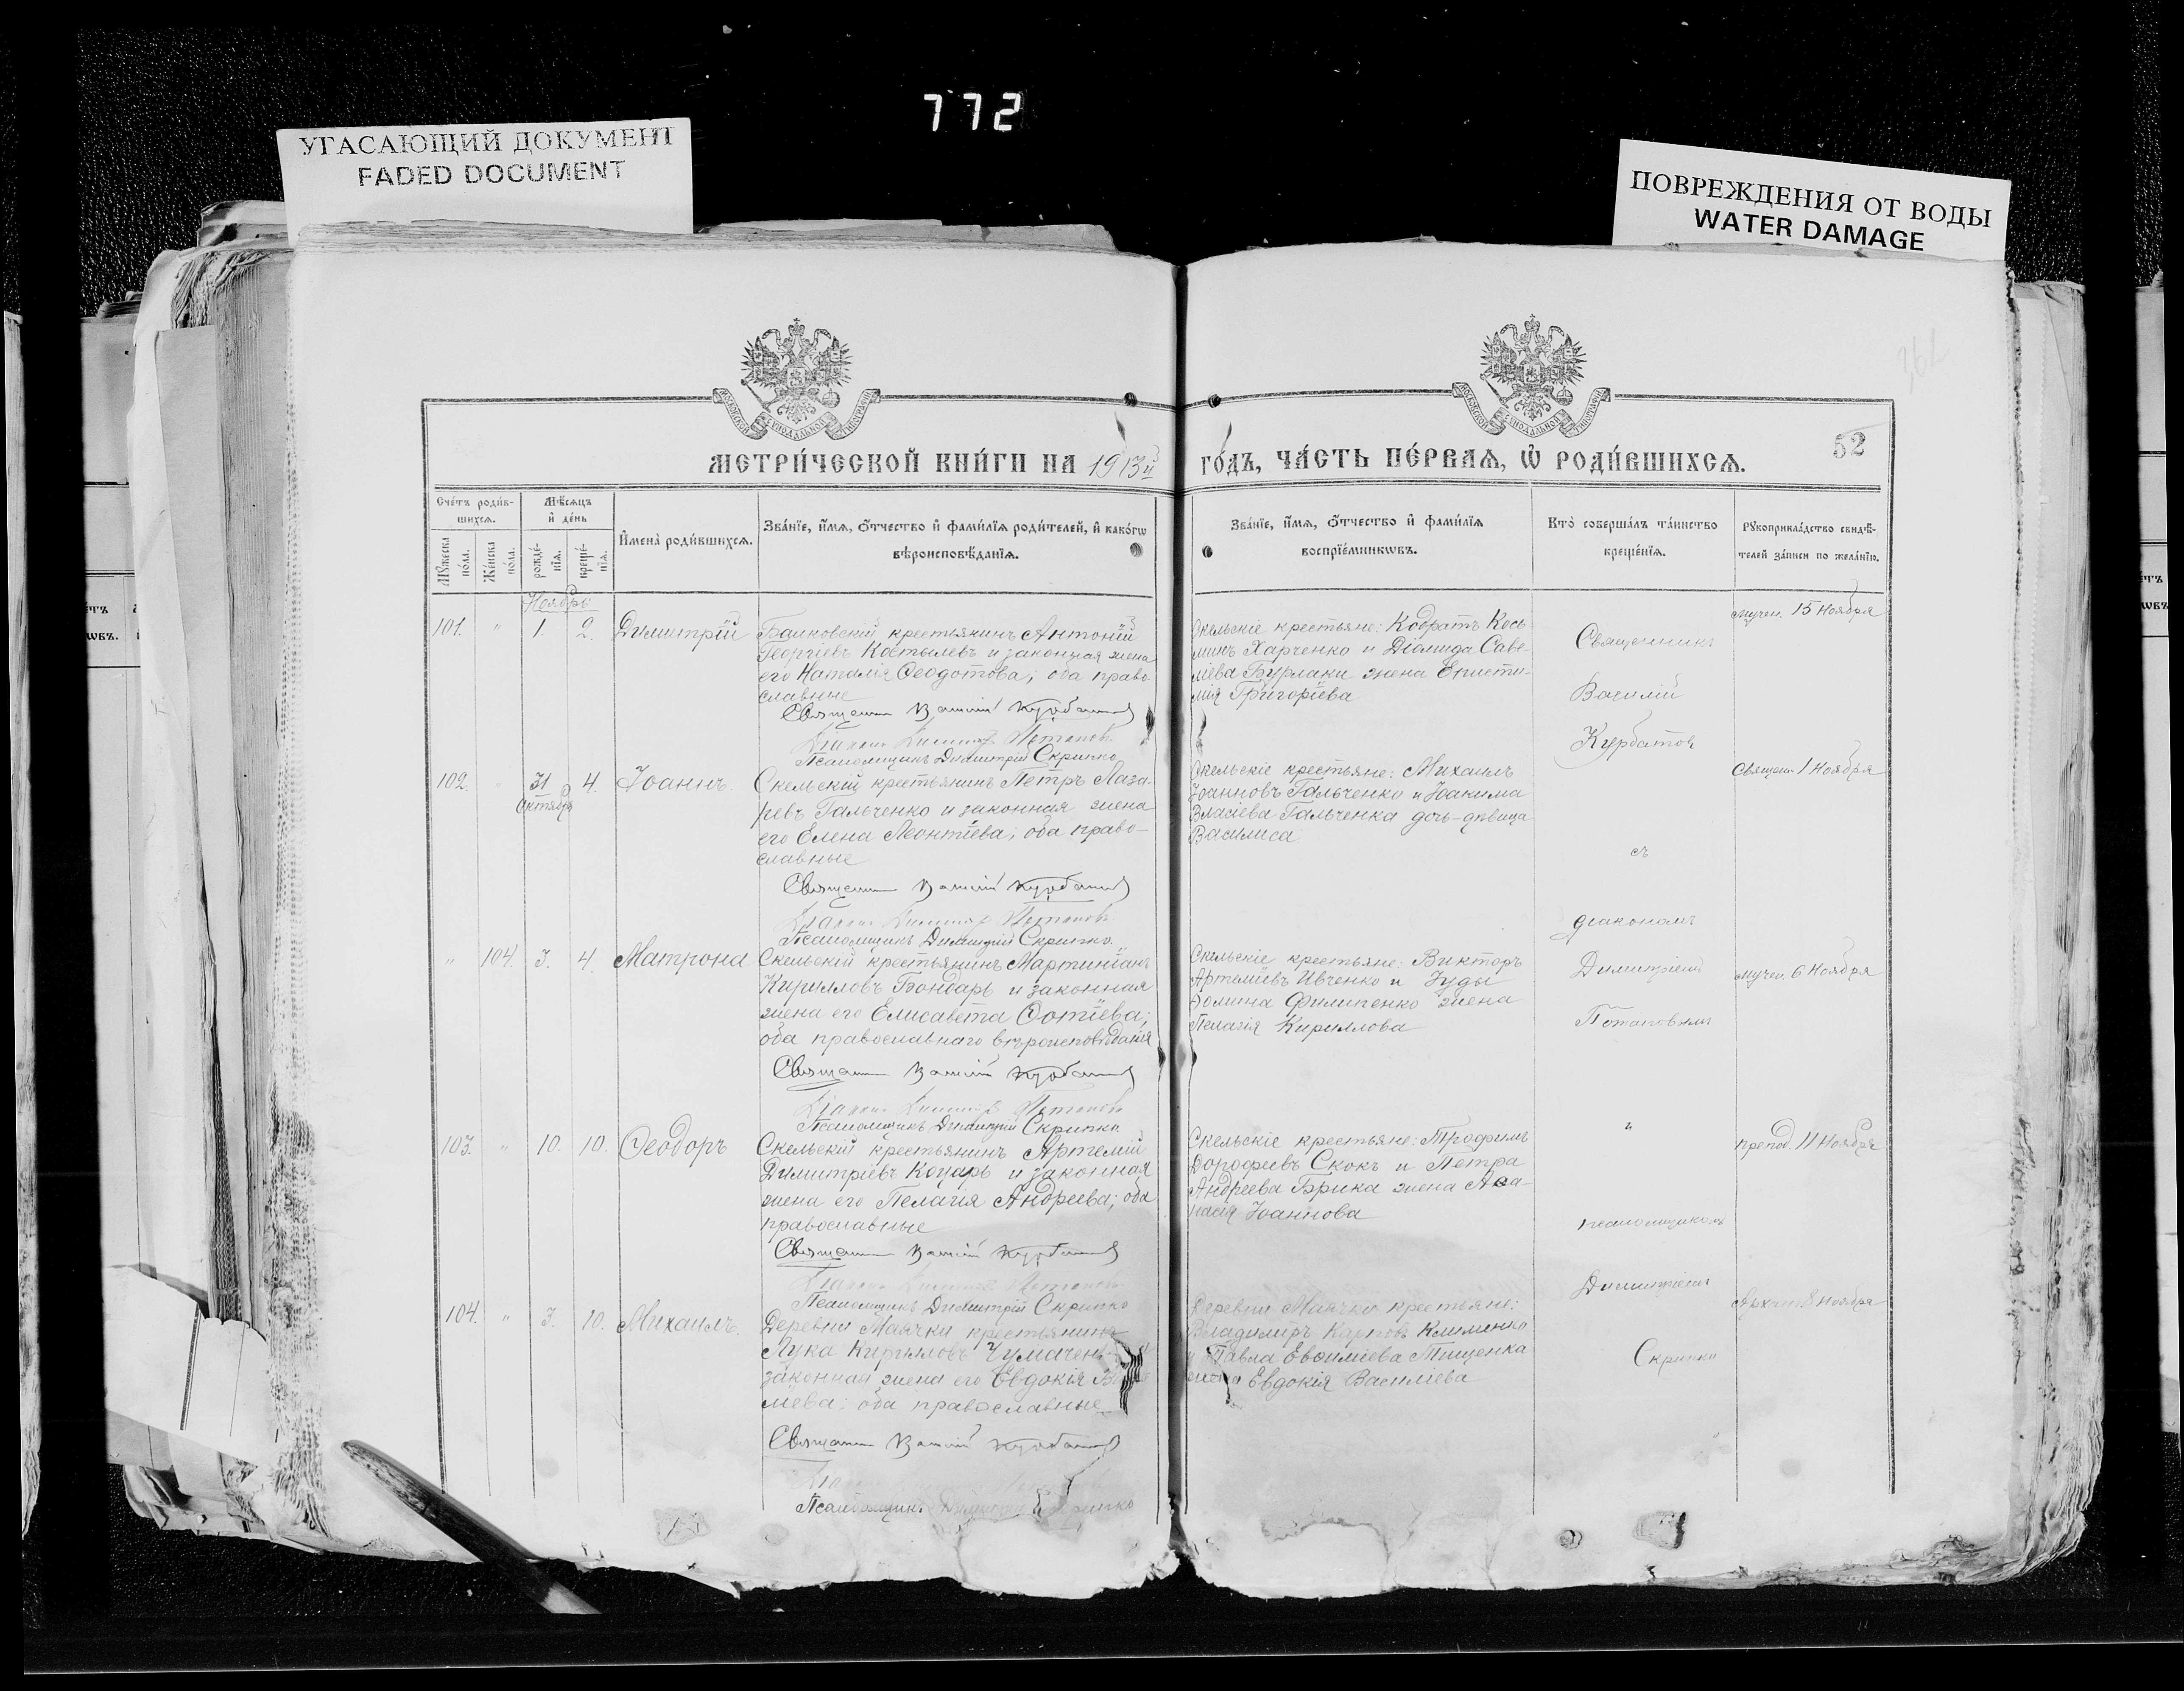 772
УГАСАЮЩИЙ ДОКУМЕНТ
FADED DOCUMENT
ПОВРЕЖДЕНИЯ ОТ ВОДЫ
WATER DAMAGE
52
МОСКОВСКОЙ СѴНОДАЛЬНОЙ ТИПОГРАФІИ
МОСКОВСКОЙ СѴНОДАЛЬНОЙ ТИПОГРАФІИ
МЕТРИ́ЧЕСКОЙ КНИ́ГИ НА 1913й ГО́ДЪ, ЧА́СТЬ ПЕ́РВАЯ, Ѡ҆ РОДИ́ВШИХСЯ.
Сче́тъ роди́в-
шихся.
Мꙋ́жеска по́ла.
Же́нска по́ла.
Мѣ́сяцъ
и҆ де́нь
рожде́-
нїя.
креще́-
нїя.
И҆мена̀ роди́вшихся.
Зва́нїе, и҆́мя, ѻ҆́тчество и҆ фами́лїя роди́телей, и҆ како́гѡ
вѣроисповѣ́данїя.
Зва́нїе, и҆́мя, ѻ҆́тчество и҆ фами́лїя
воспрїе́мникѡвъ.
Кто̀ соверша́лъ та́инство
креще́нїя.
Рꙋкоприкла́дство свидѣ́-
телей за́писи по жела́нїю.
Ноябрь
101. " 1. 2. Димитрій
Банковскій крестьянинъ Антоній
Георгіевъ Костылевъ и законная жена
его Наталія Ѳеодотова; оба право-
славные
Священникъ Василій Курбатовъ
Діаконъ Димитрій Потаповъ
Псаломщикъ Димитрій Скрипко
Скельскіе крестьяне: Кодратъ Кось-
минъ Харченко и Діомида Саве-
ліева Бурлаки жена Еписти-
мія Григоріева
Священникъ
Василій
Курбатовъ
мучен. 15 Ноября
102. " 31 Октября 4. Іоаннъ.
Скельскій крестьянинъ Петръ Лаза-
ревъ Гальченко и законная жена
его Елена Леонтіева; оба право-
славные
Священникъ Василій Курбатовъ
Діаконъ Димитрій Потаповъ
Псаломщикъ Димитрій Скрипко.
Скельскіе крестьяне: Михаилъ
Іоанновъ Гальченко и Іоакима
Власіева Гальченка дочь-дѣвица
Василиса
съ
діакономъ
Священ. 1 Ноября
" 104. 3. 4. Матрона
Скельскій крестьянинъ Мартиніанъ
Кирилловъ Бондарь и законная
жена его Елисавета Фотіева;
оба православнаго вѣроисповѣданія
Священникъ Василій Курбатовъ
Діаконъ Димитрій Потаповъ
Псаломщикъ Димитрій Скрипко
Скельскіе крестьяне: Викторъ
Артеміевъ Ивченко и Іуды
Фомина Филипенко жена
Пелагія Кириллова
Димитріемъ
Потаповымъ
мучен. 6 Ноября
103. " 10. 10. Ѳеодоръ
Скельскій крестьянинъ Артемій
Димитріевъ Коцарь и законная
жена его Пелагія Андреева; оба
православные
Священникъ Василій Курбатовъ
Діаконъ Димитрій Потаповъ
Псаломщикъ Димитрій Скрипко
Скельскіе крестьяне: Трофимъ
Дорофеевъ Скокъ и Петра
Андреева Брика жена Аѳа-
насія Іоаннова
и
псаломщикомъ
Димитріемъ
препод. 11 Ноября
104. " 3. 10. Михаилъ.
Деревни Маячки крестьянинъ
Лука Кирилловъ
законная жена его Евдокія
оба православные
Священникъ Василій Курбатовъ
Псаломщикъ Димитрій Скрипко
Деревни Маячки крестьяне:
Владиміръ Карповъ Клименко
и Павла Евѳиміева Тищенка
жена Евдокія Василіева
Скрипко
8 Ноября